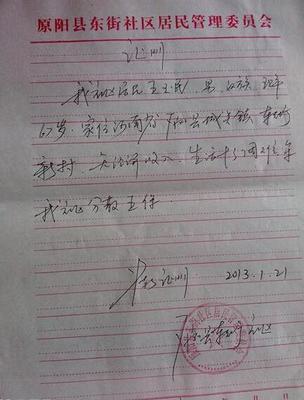 原阳县东街社区居民管理委员会
证明
我社区居民王文民,男,汉族,现年
67岁,家住河南省原阳县城关镇东街
新村,无经济收入,生活十分困难,系
我社区分散五保
特此证明 2013.1.21
原阳县东街社区